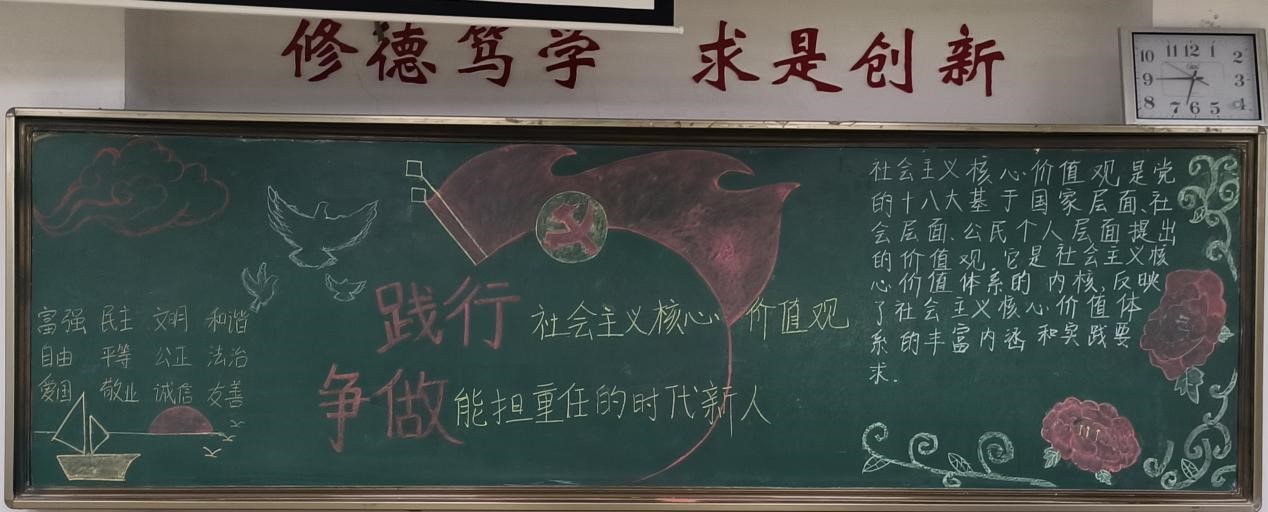 修德笃学 求是创新
10 11 12 1 2
9 3
8 7 6 5 4
富强 民主 文明 和谐
自由 平等 公正 法治
爱国 敬业 诚信 友善
践行 社会主义核心价值观
争做 能担重任的时代新人
社会主义核心价值观是党
的十八大基于国家层面、社
会层面、公民个人层面提出
的价值观,它是社会主义核
心价值体系的内核,反映
了社会主义核心价值体
系的丰富内涵和实践要
求.